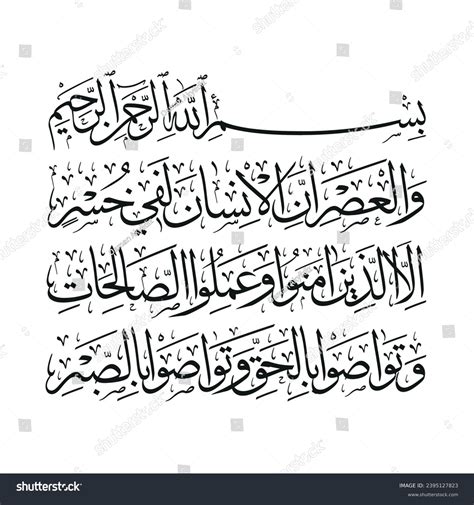 بِسْمِ ٱللَّهِ ٱلرَّحْمَٰنِ ٱلرَّحِيمِ
وَالْعَصْرِ إِنَّ الْإِنسَانَ لَفِي خُسْرٍ
إِلَّا الَّذِينَ آمَنُوا وَعَمِلُوا الصَّالِحَاتِ
وَتَوَاصَوْا بِالْحَقِّ وَتَوَاصَوْا بِالصَّبْرِ
shutterstock
IMAGE ID: 2395127823
www.shutterstock.com